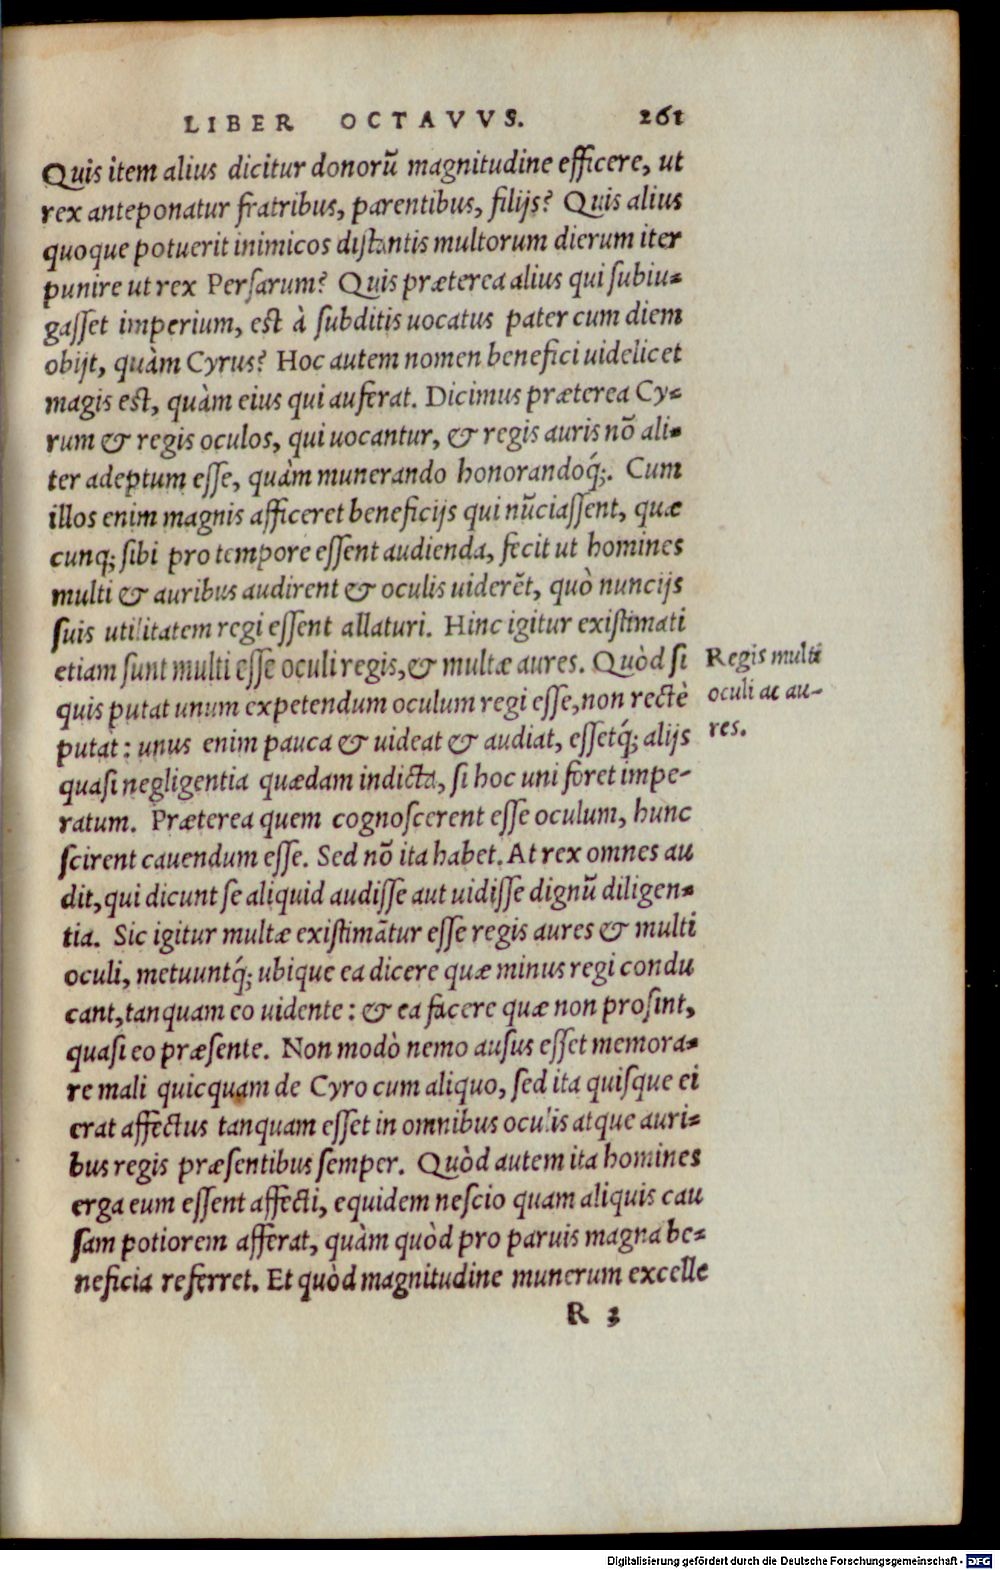 LIBER OCTAVVS. 261
Quis item alius dicitur donorũ magnitudine efficere, ut
rex anteponatur fratribus, parentibus, filijs? Quis alius
quoque potuerit inimicos distantis multorum dierum iter
punire ut rex Persarum? Quis præterea alius qui subiu-
gasset imperium, est à subditis uocatus pater cum diem
obijt, quàm Cyrus? Hoc autem nomen benefici uidelicet
magis est, quàm eius qui auferat. Dicimus præterea Cy-
rum & regis oculos, qui uocantur, & regis auris nõ ali-
ter adeptum esse, quàm munerando honorandoq́;. Cum
illos enim magnis afficeret beneficijs qui nũciassent, quæ
cunq; sibi pro tempore essent audienda, fecit ut homines
multi & auribus audirent & oculis uiderẽt, quò nuncijs
suis utilitatem regi essent allaturi. Hinc igitur existimati
etiam sunt multi esse oculi regis, & multæ aures. Quòd si
quis putat unum expetendum oculum regi esse, non rectè
putat: unus enim pauca & uideat & audiat, essetq́; alijs
quasi negligentia quædam indicta, si hoc uni foret impe-
ratum. Præterea quem cognoscerent esse oculum, hunc
scirent cauendum esse. Sed nõ ita habet. At rex omnes au
dit, qui dicunt se aliquid audisse aut uidisse dignũ diligen-
tia. Sic igitur multæ existimãtur esse regis aures & multi
oculi, metuuntq́; ubique ea dicere quæ minus regi condu
cant, tanquam eo uidente: & ea facere quæ non prosint,
quasi eo præsente. Non modò nemo ausus esset memora-
re mali quicquam de Cyro cum aliquo, sed ita quisque ei
erat affectus tanquam esset in omnibus oculis atque auri-
bus regis præsentibus semper. Quòd autem ita homines
erga eum essent affecti, equidem nescio quam aliquis cau
sam potiorem afferat, quàm quòd pro paruis magna be-
neficia referret. Et quòd magnitudine munerum excelle
R 3
Regis multi
oculi ac au-
res.
Digitalisierung gefördert durch die Deutsche Forschungsgemeinschaft - DFG